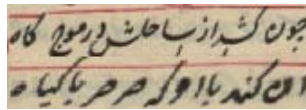 چون کشد از ساحلش در موج گاه
آن کند با او که صرصر با گیاه